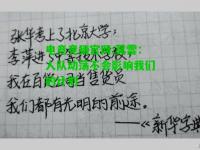 张华考上了北京大学;
李萍进了中等技术学校;
人队动荡不会影响我们
我在百货公司当售货员
我们都有光明的前途。
——《新华字典